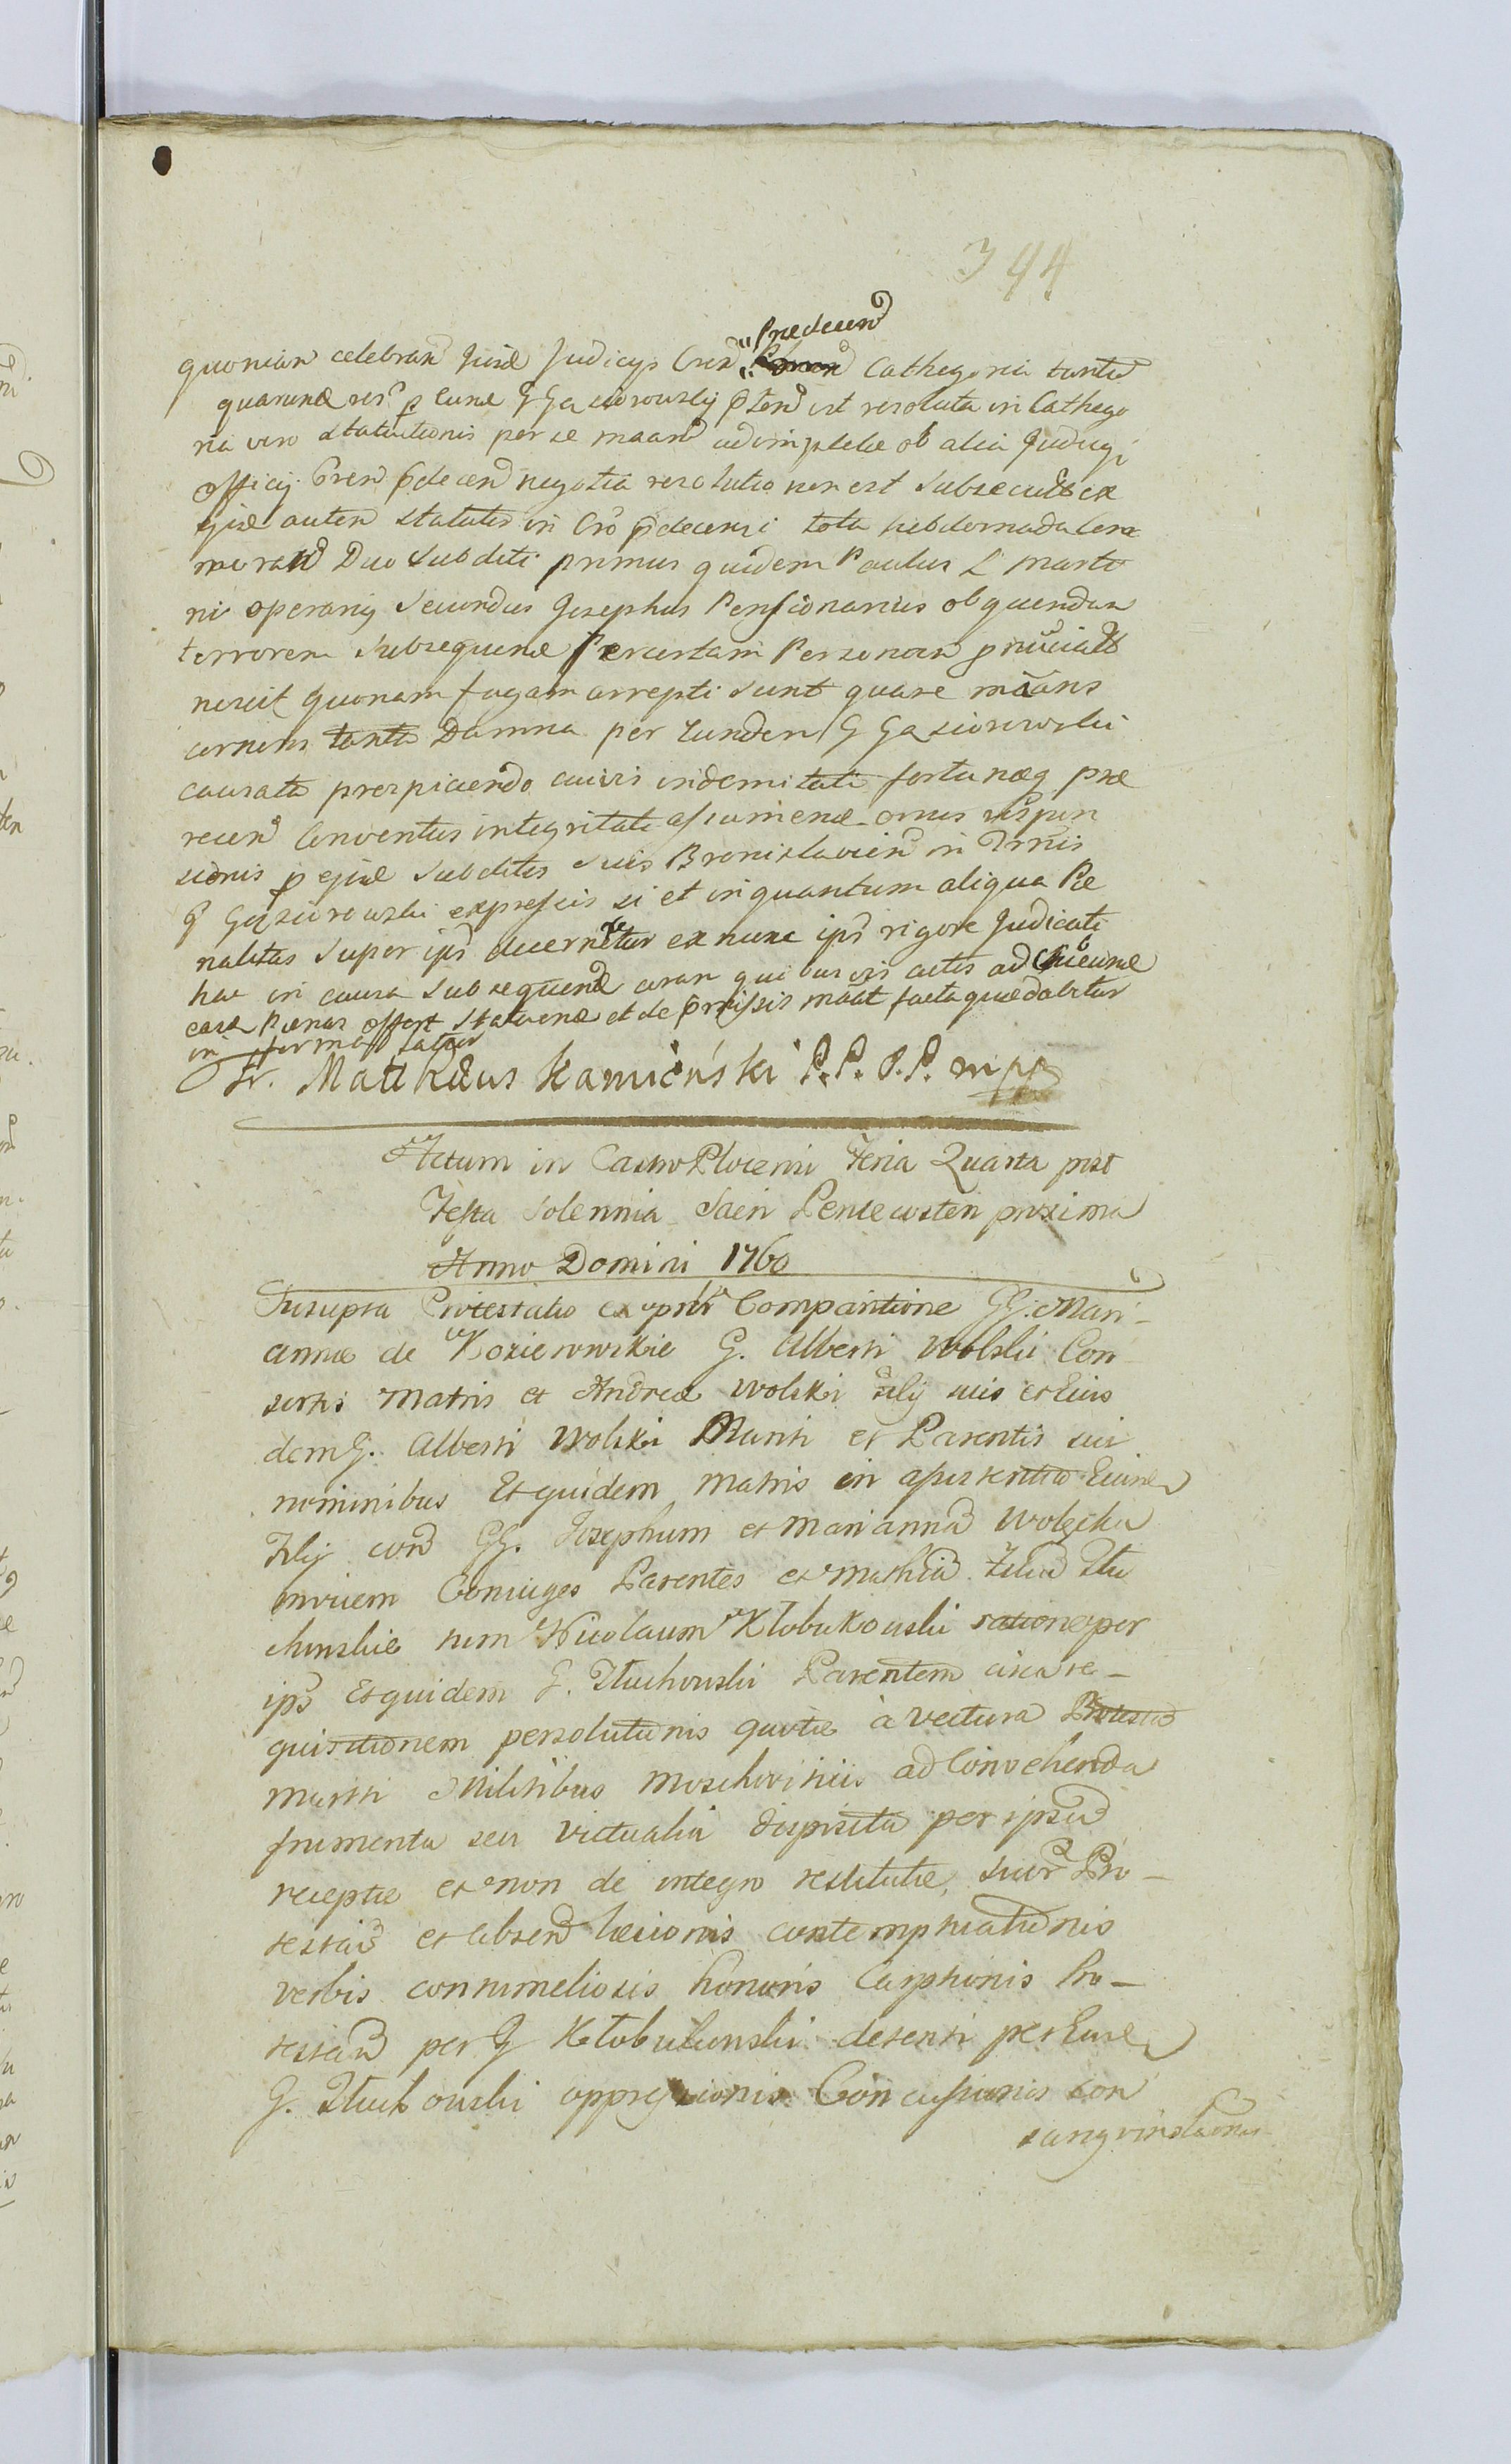 344
Praedecen
quoniam celebran Juise Judicys Cren Cathegoria tantu
quarume res p eume G Gasiorowskij pten est resoluta in Cathego
ria vero Statutionis per se maand adimpletae ob alia Judicyi
officij Cren pdecen negotia resolutio non est Subsecuta ex
ijsde autem statutis in Cro pdecensi tota hebdomada Cene
morand Duo Subditi primus quidem Paulus L Marti
ni operarij Secundus Josephus Pensionarius ob quendam
terrorem Subsequene Per certam Personam
nescit quonam fugam arrepti sunt quare maans
cernens tanta Damna per eundem G Gasiorowski
causata prospiciendo cuivis indemnitati fortunaeq prae
recen Conventus integritati assumene onus respon
sionis p ejuse Subditis suis Bronislavien in Trnis
G Gasiorowski expressis si et in quantum aliqua Pae
nalitas super ips decerneretur ex nunc ips rigore Judicati
hac in causa subsequene coram quibusvis actis ad
easd Paenas offert Statuene et de pmissis maat facta quae dabitur
in forma latior
Fr. Matthaeus Kamieński P.P. P.P. mpp
Actum in Castro Plocensi Feria Quarta post
Festa Solennia Sacri Pentecosten proxima
Anno Domini 1760
Suscepta Protestatio ex oprti Compartione GG. Mari-
annae de Kozierowskie G. Alberti Wolski Con
sortis Matris et Andreae Wolski filij suis et Eius
dem G. Alberti Wolski Mariti et Parentis sui
nominibus Et quidem Matris in assistentia Euine
Filij con GG. Josephum et Mariannam Wolęcka
invicem Coniuges Parentes et Mathia Filia Tłu
chowskie tum Nicolaum Kłobukowski ratione per
ips Et quidem G. Tłuchowski Parentem circa re-
quisitionem persolutionis quotae à vectura Protestan
Mariti Militibus Moschoviticis ad Convehenda
frumenta seu victualia disposita per ipsum
receptae et non de integro restitutae, suor Pro-
testan et absen laesionis contemptuationis
verbis contumeliosis honoris Carptionis Pro-
testan per G Kłobukowski detenti per Eune
G. Tłuchowski oppressionis Concussionis con
sangvinolationis